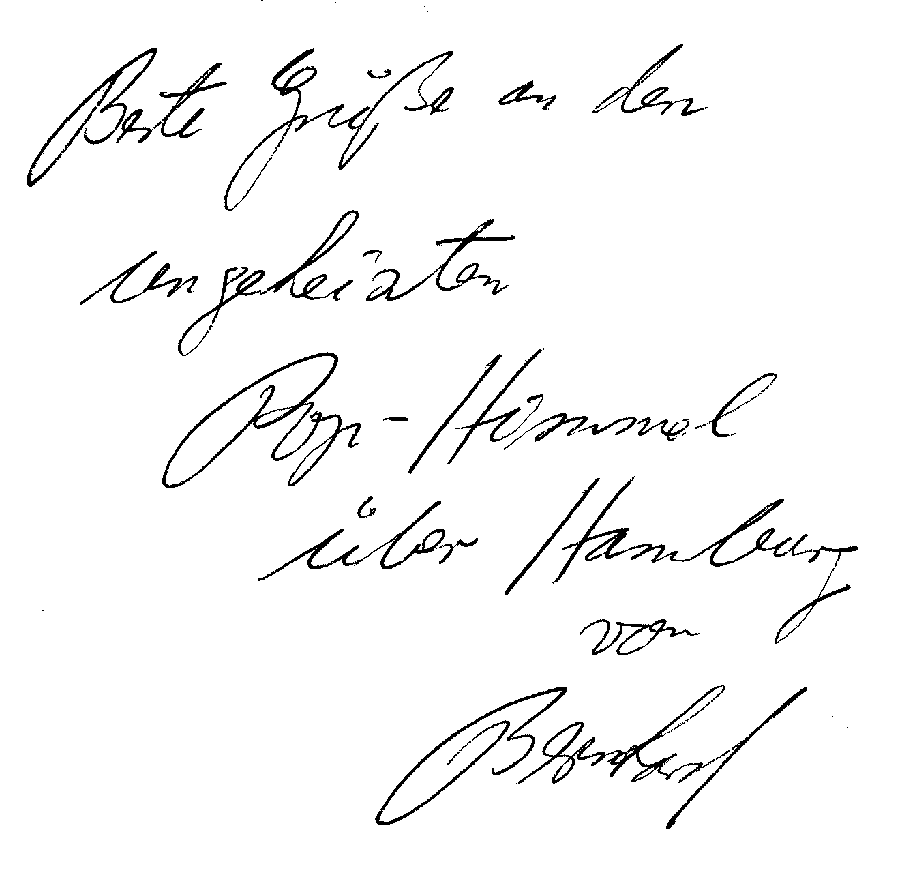 Beste Grüße an den
ungeheizten
Pop-Himmel
über Hamburg
von
Bernhard